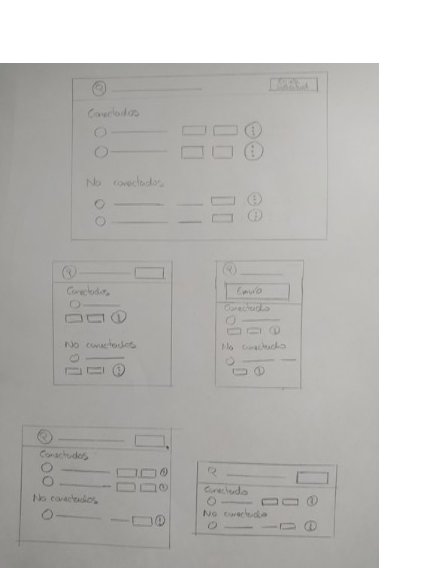 Conectados
No conectados
Conectados
No conectados
Envío
Conectado
No conectado
Conectados
No conectados
Conectado
No conectado